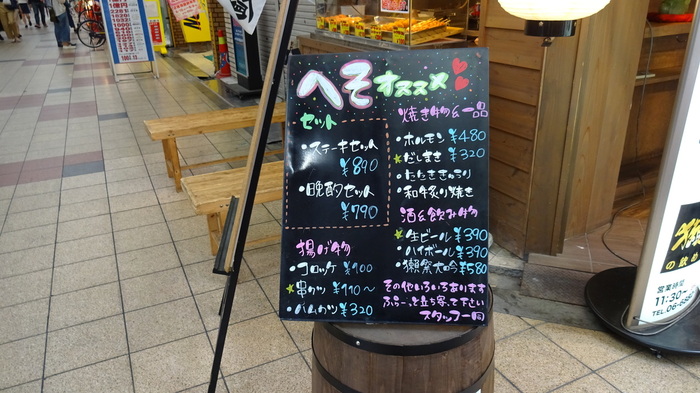 へそ オススメ
セット
・ステーキセット
¥890
・晩酌セット
¥790
揚げ物
・コロッケ ¥100
☆串カツ ¥110〜
・ハムカツ ¥320
焼き物&一品
・ホルモン ¥480
☆だしまき ¥320
・たたききゅうり
・和牛炙り焼き
酒&飲み物
☆生ビール ¥390
・ハイボール ¥390
・獺祭大吟 ¥580
その他いろいろあります
ふらーっと立ち寄って下さい
スタッフ一同
営業時間
11:30~